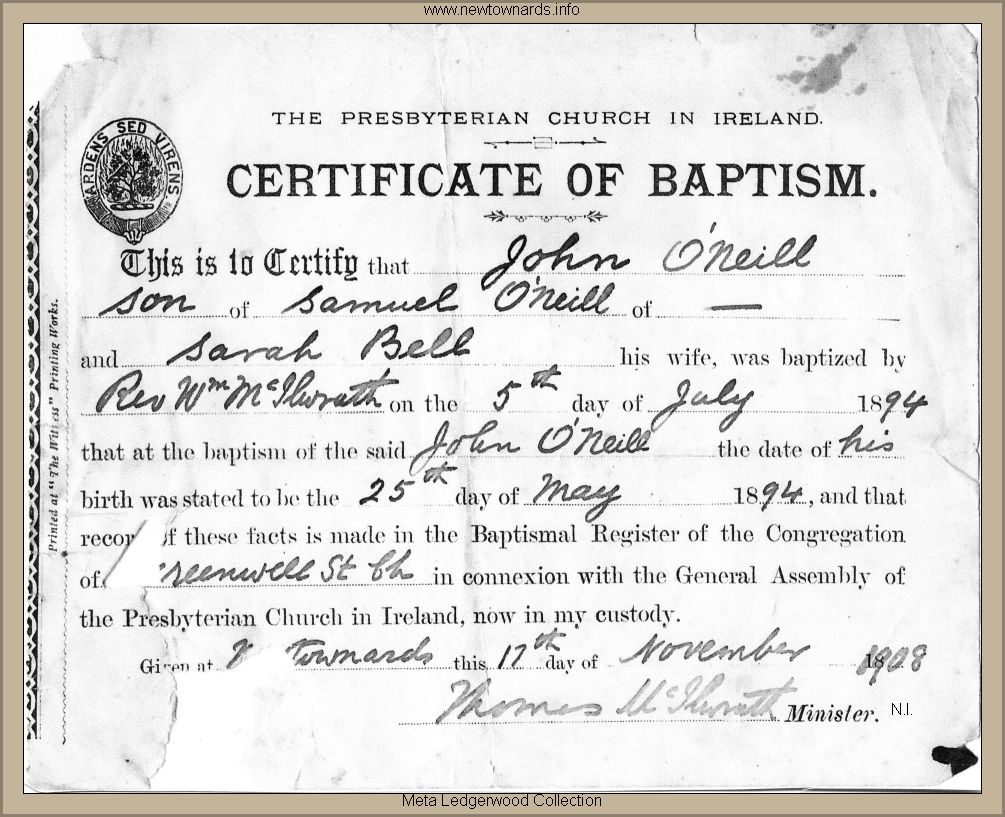 www.newtownards.info
THE PRESBYTERIAN CHURCH IN IRELAND.
ARDENS SED VIRENS
CERTIFICATE OF BAPTISM.
This is to Certify that John O'Neill
son of Samuel O'Neill of —
and Sarah Bell his wife, was baptized by
Rev Wm McIlwrath on the 5th day of July 1894
that at the baptism of the said John O'Neill the date of his
birth was stated to be the 25th day of May 1894, and that
recor of these facts is made in the Baptismal Register of the Congregation
of reenwell St Ch in connexion with the General Assembly of
the Presbyterian Church in Ireland, now in my custody.
Given at N townards this 17th day of November 1908
Thomas McIlwrath Minister. N.I.
Printed at "The Witness" Printing Works.
Meta Ledgerwood Collection